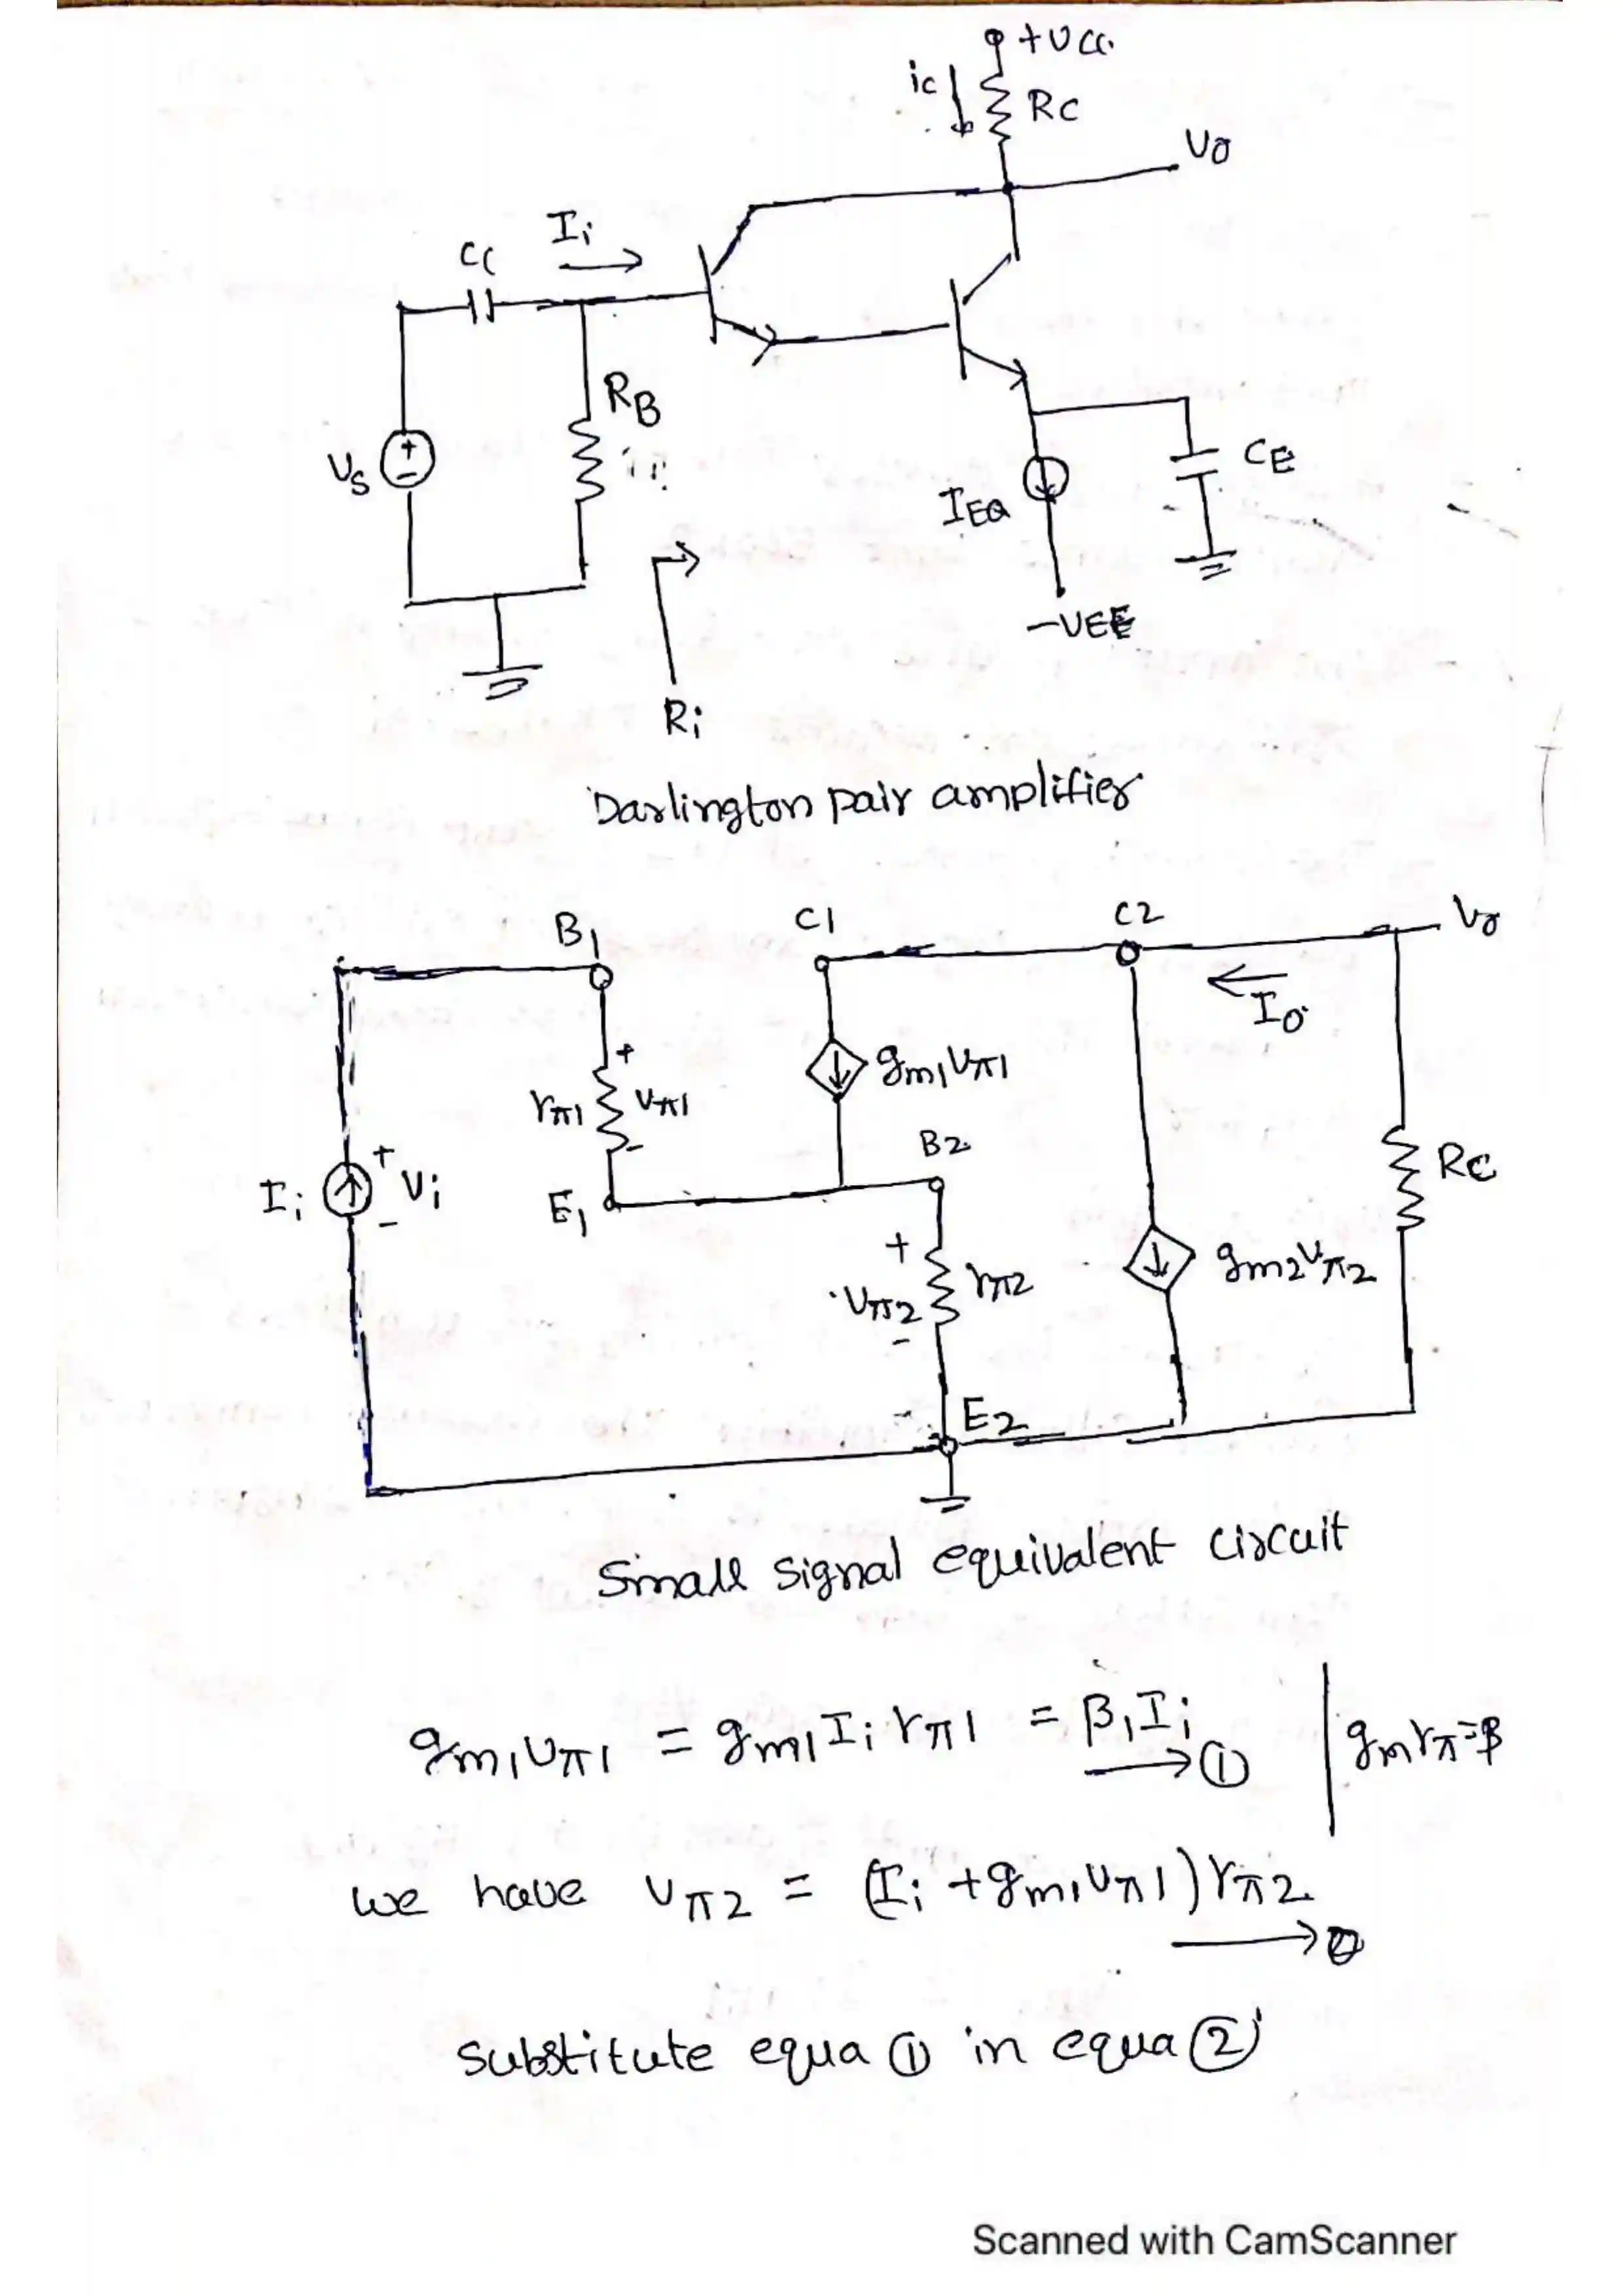 +VCC
ic
RC
Vo
Ii
CC
RB
VS
CE
IEQ
-VEE
Ri
Darlington pair amplifier
B1
C1
C2
Vo
Io
gm1Vπ1
+
rπ1
Vπ1
-
B2
RC
Ii
+
Vi
-
E1
+
Vπ2
rπ2
-
gm2Vπ2
E2
Small signal equivalent circuit
gm1Vπ1 = gm1Iirπ1 = β1Ii → ① | gmrπ=β
we have Vπ2 = (Ii + gm1Vπ1)rπ2 → ②
substitute equa ① in equa ②
Scanned with CamScanner